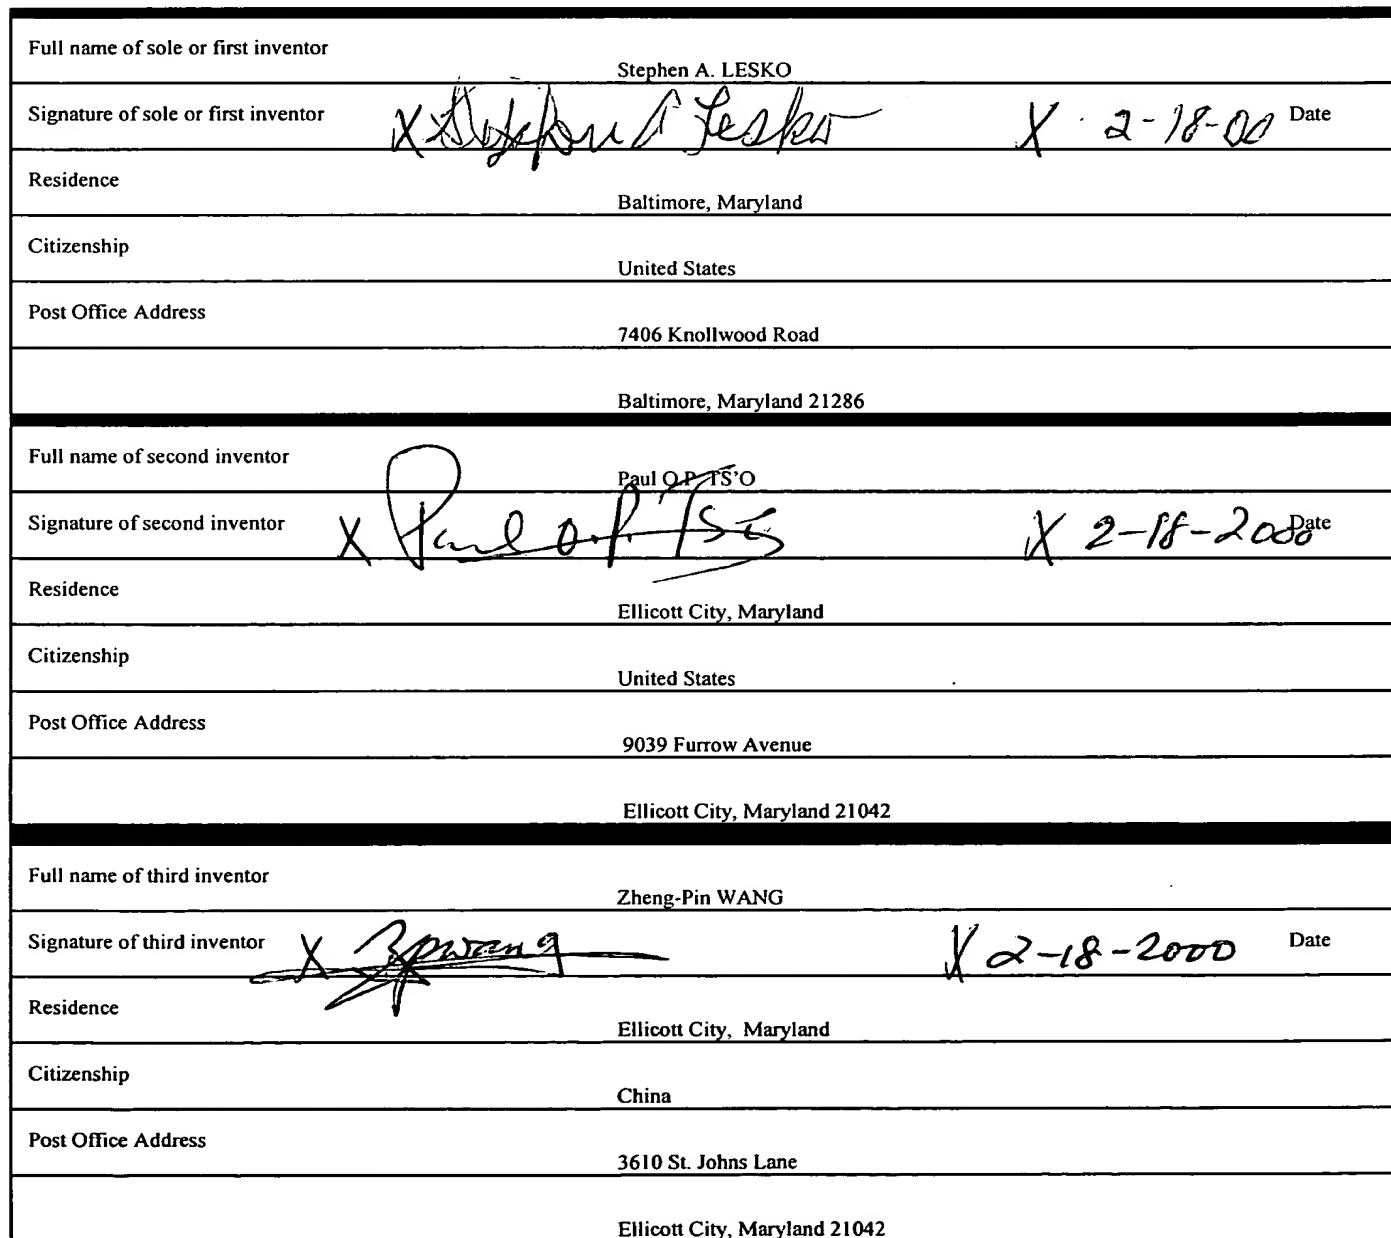 Full name of sole or first inventor
Stephen A. LESKO
Signature of sole or first inventor X Stephen A Lesko X 2-18-00 Date
Residence
Baltimore, Maryland
Citizenship
United States
Post Office Address
7406 Knollwood Road
Baltimore, Maryland 21286
Full name of second inventor
Paul O.P. TS'O
Signature of second inventor X Paul O.P. Ts'o X 2-18-2000 Date
Residence
Ellicott City, Maryland
Citizenship
United States
Post Office Address
9039 Furrow Avenue
Ellicott City, Maryland 21042
Full name of third inventor
Zheng-Pin WANG
Signature of third inventor X Zpwang X 2-18-2000 Date
Residence
Ellicott City, Maryland
Citizenship
China
Post Office Address
3610 St. Johns Lane
Ellicott City, Maryland 21042